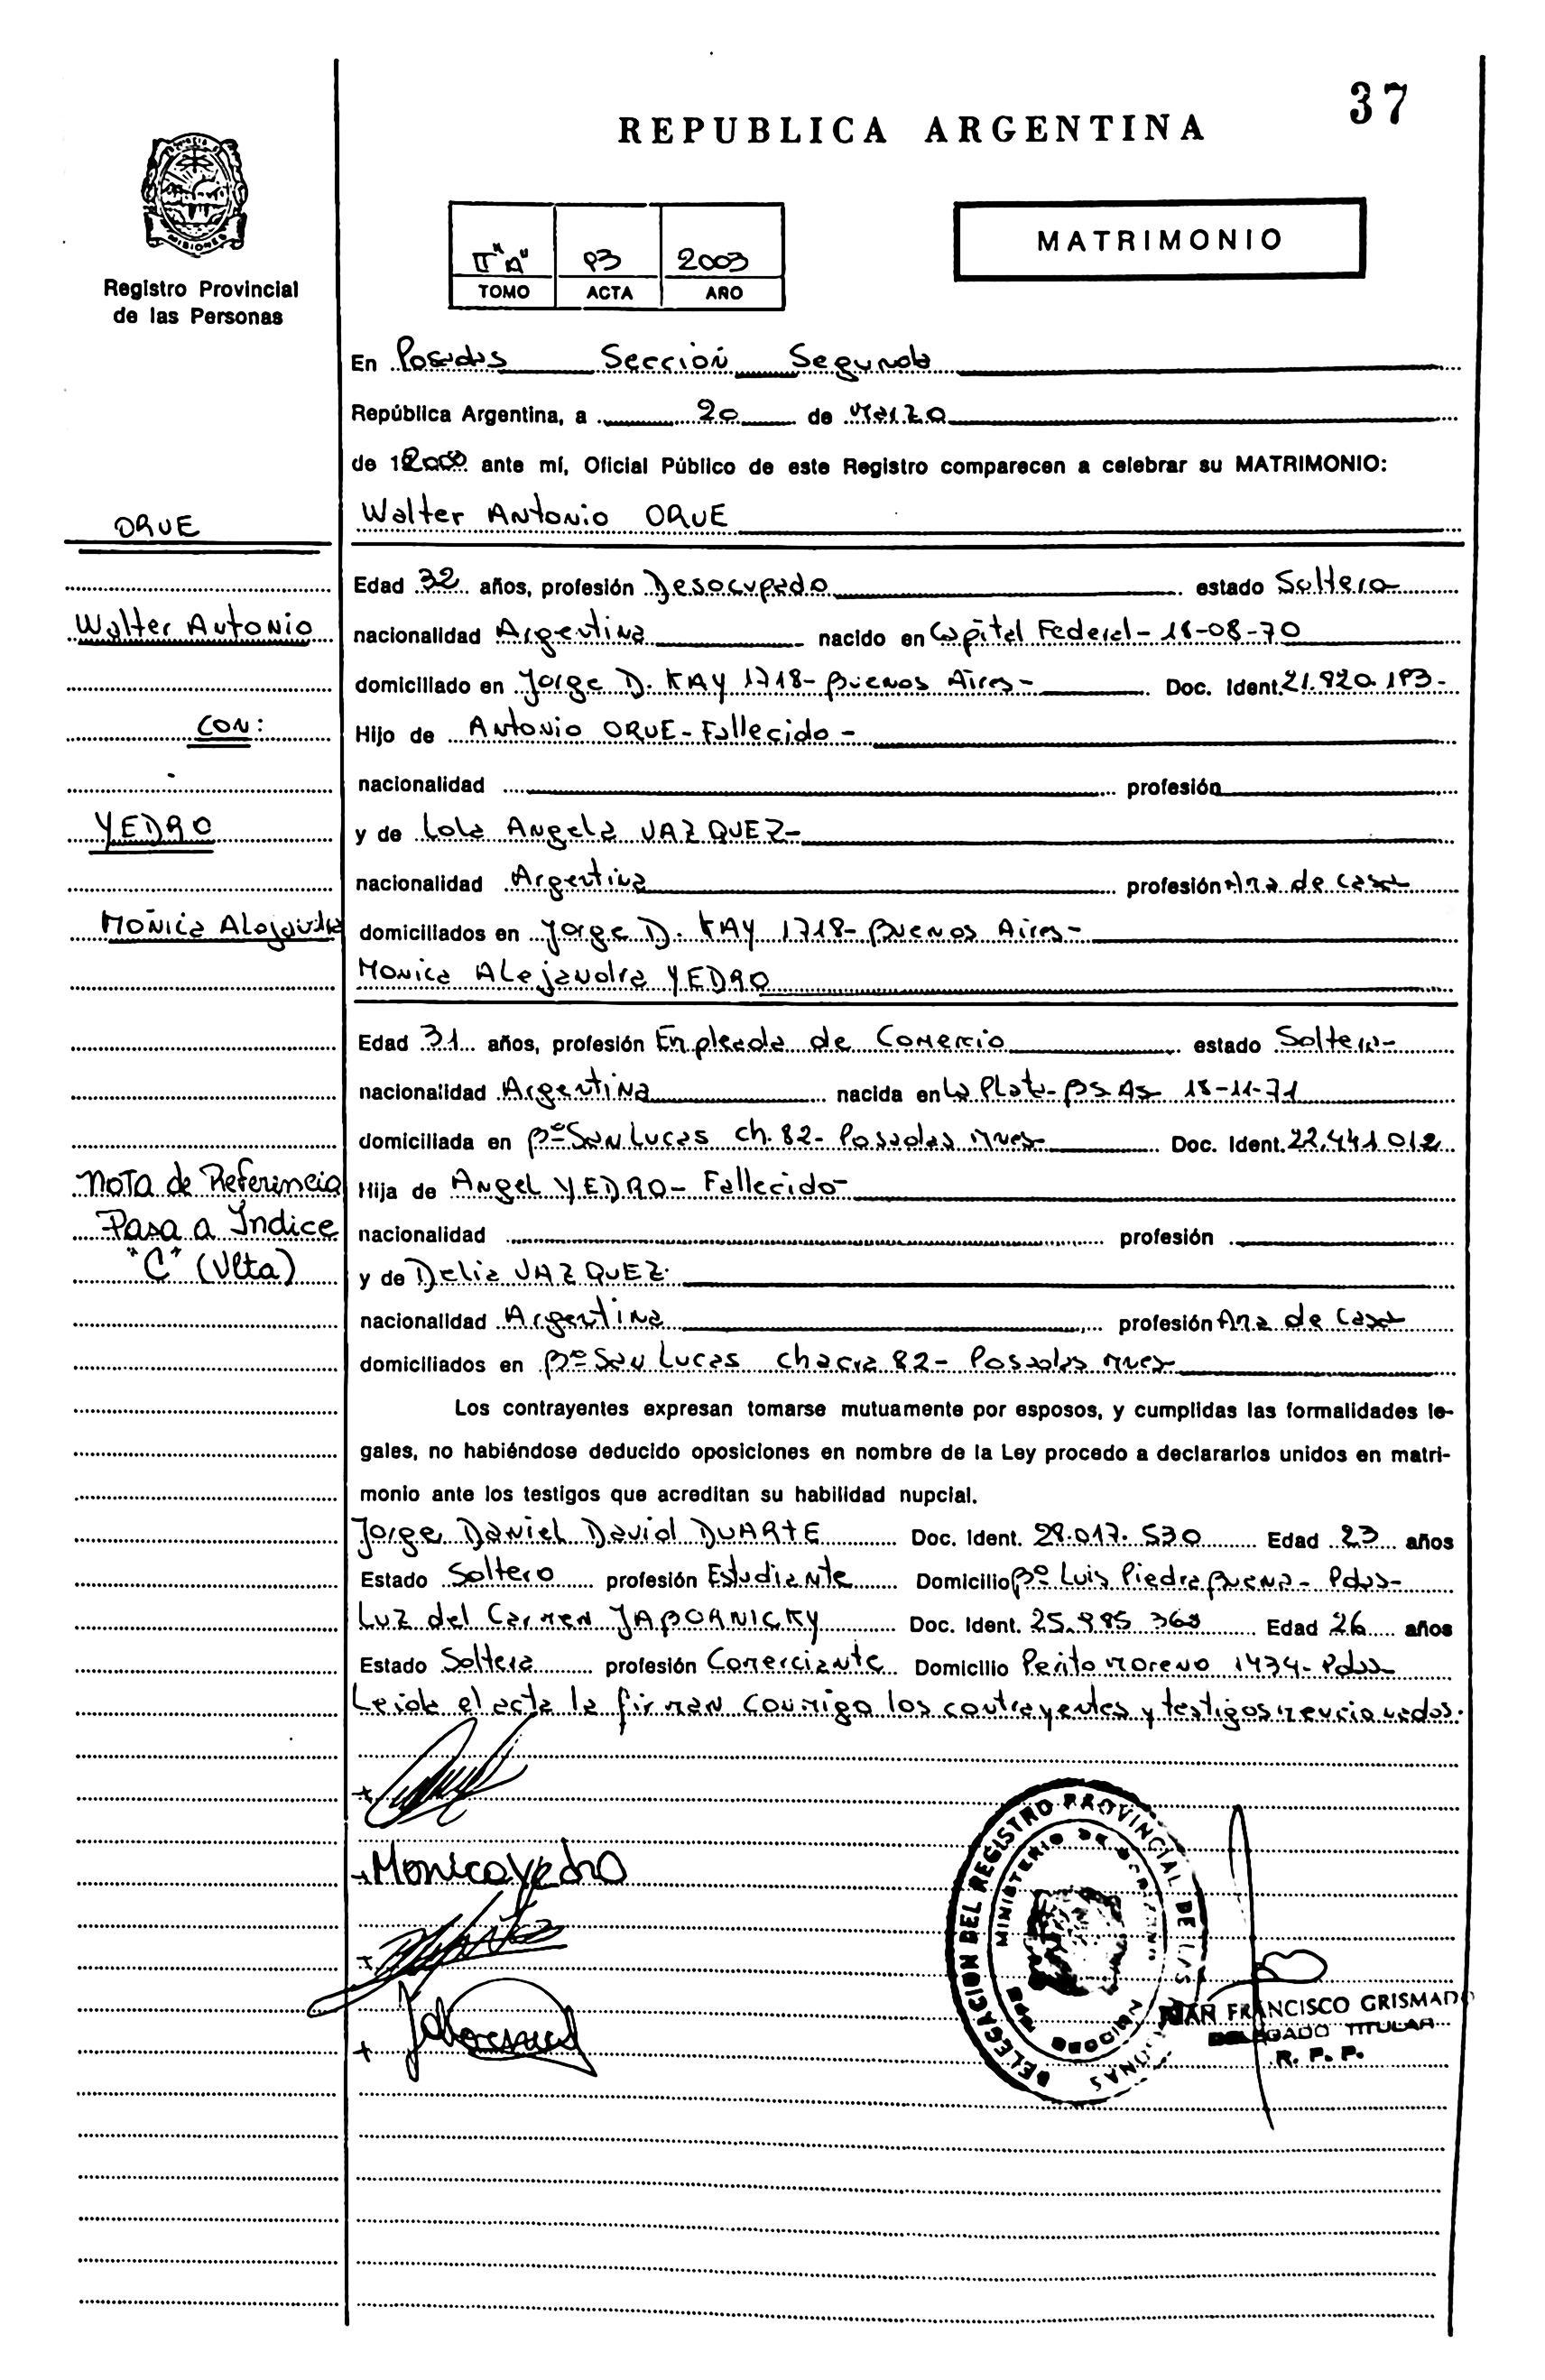 37
REPUBLICA ARGENTINA
MISIONES
Registro Provincial
de las Personas
MATRIMONIO
II "A" 93 2003
TOMO ACTA AÑO
En Posadas Sección Segunda
República Argentina, a 20 de Marzo
de ante mí, Oficial Público de este Registro comparecen a celebrar su MATRIMONIO:
Walter Antonio ORUE
ORUE
Walter Antonio
CON:
YEDRO
Mónica Alejandra
Nota de Referencia
Pasa a Indice
"C" (Vlta)
Edad 32 años, profesión Desocupado estado Soltero
nacionalidad Argentina nacido en Capital Federal - 18-08-70
domiciliado en Jorge D. KAY 1718 - Buenos Aires - Doc. Ident. 21.920.193-
Hijo de Antonio ORUE - Fallecido -
nacionalidad profesión
y de Lola Angela VAZQUEZ-
nacionalidad Argentina profesión Ama de casa
domiciliados en Jorge D. KAY 1718 - Buenos Aires -
Monica Alejandra YEDRO
Edad 31 años, profesión Empleada de Comercio estado Soltera-
nacionalidad Argentina nacida en La Plata - Bs As 18-11-71
domiciliada en Bº San Lucas Ch. 82 - Posadas Mnes Doc. Ident. 22.441.012
Hija de Angel YEDRO - Fallecido-
nacionalidad profesión
y de Delia VAZQUEZ-
nacionalidad Argentina profesión Ama de Casa
domiciliados en Bº San Lucas Chacra 82 - Posadas Mnes
Los contrayentes expresan tomarse mutuamente por esposos, y cumplidas las formalidades le-
gales, no habiéndose deducido oposiciones en nombre de la Ley procedo a declararlos unidos en matri-
monio ante los testigos que acreditan su habilidad nupcial.
Jorge Daniel David DUARTE Doc. Ident. 28.017.530 Edad 23 años
Estado Soltero profesión Estudiante Domicilio Bº Luis Piedra Buena - Pdas-
Luz del Carmen JAPORNICKY Doc. Ident. 25.985.360 Edad 26 años
Estado Soltera profesión Comerciante Domicilio Perito Moreno 1434 - Pdas
Leida el acta la firman conmigo los contrayentes y testigos mencionados.
Monica Yedro
DELEGACION DEL REGISTRO PROVINCIAL DE LAS PERSONAS
MINISTERIO DE GOBIERNO
JUAN FRANCISCO GRISMADO
DELEGADO TITULAR
R. P. P.